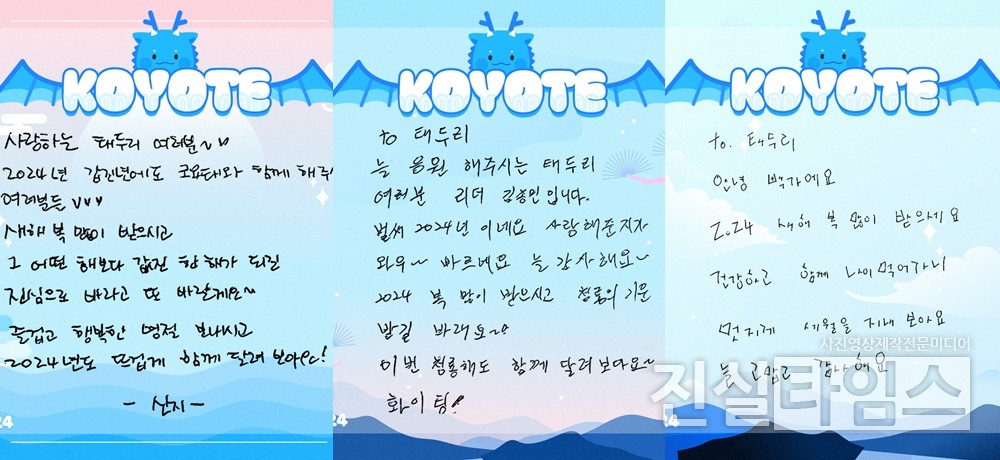 KOYOTE
사랑하는 태두리 여러분~♡♡
2024년 갑진년에도 코요태와 함께 해주
여러분들 ♡♡♡
새해 복 많이 받으시고
그 어떤 해보다 값진 한 해가 되길
진심으로 바라고 또 바랄게요~
즐겁고 행복한 명절 보내시고
2024년도 뜨겁게 함께 달려 보아요!
- 신지 -
24
KOYOTE
to 태두리
늘 응원 해주시는 태두리
여러분 리더 김종민입니다.
벌써 2024년 이네요 사랑해준지가
와우~ 빠르네요 늘 감사해요~
2024 복 많이 받으시고 청룡의 기운
받길 바래요~
이번 청룡해도 함께 달려보아요~
화이팅!
24
KOYOTE
to. 태두리
안녕 빽가예요
2024 새해 복 많이 받으세요
건강하고 함께 나이먹어가니
멋지게 세월을 지내 보아요
늘 고맙고 감사해요
24
사진영상제작전문미디어
진실타임스